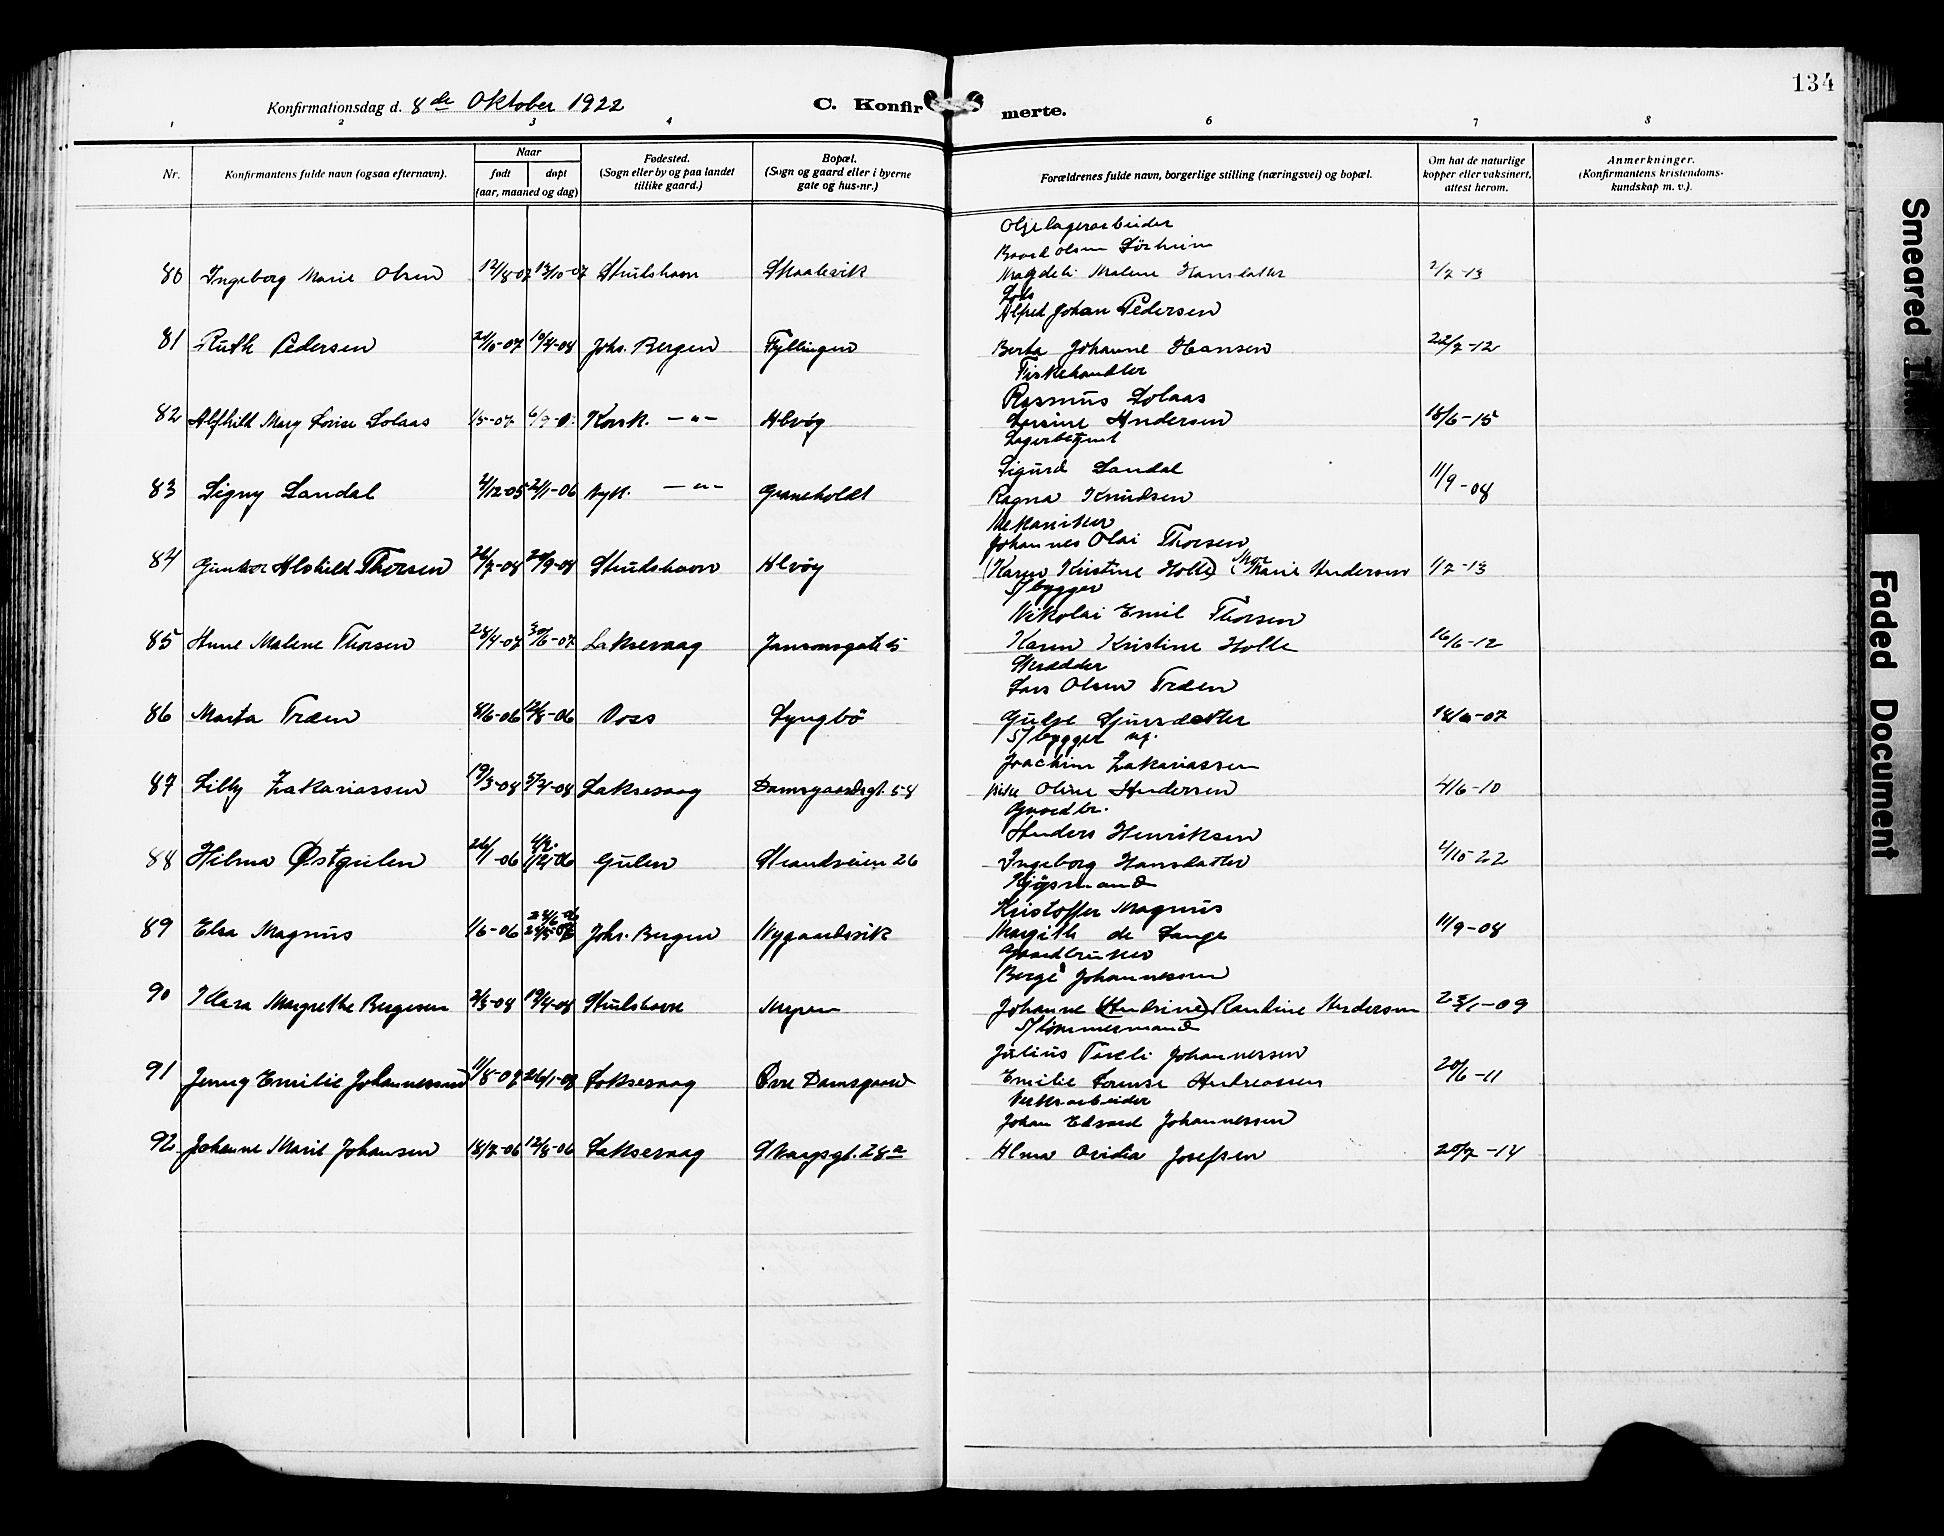 134
Konfirmationsdag d. 8de Oktober 1922
C. Konfirmerte.
1 2 3 4 6 7 8
Nr.
Konfirmantens fulde navn (ogsaa efternavn).
Naar
født døpt
(aar, maaned og dag)
Fødested.
(Sogn eller by og paa landet
tillike gaard.)
Bopæl.
(Sogn og gaard eller i byerne
gate og hus-nr.)
Forældrenes fulde navn, borgerlige stilling (næringsvei) og bopæl.
Om hat de naturlige
kopper eller vaksinert,
attest herom.
Anmerkninger.
(Konfirmantens kristendoms-
kundskap m. v.).
Oljelagerarbeider
Olsen
80 Ingeborg Marie Olsen 12/8-07 13/10-07 Skulshavn Skaalevik Malene 2/7-13
Alfred Johan Pedersen
81 Ruth Pedersen 10/4-08 Johs. Bergen Fyllingen Berta Johanne Hansen 22/7-12
Fiskehandler
Rasmus Solaas
82 Alfhild Mary Solaas 1/5-07 Korsk. -"- Alvøy Andersen 18/6-15
Sigurd Sandal
83 Signy Sandal 4/12-05 2/1-06 Nyk. -"- Graneholdt Ragna Knudsen 11/9-08
Mekaniker
Johannes Olai Thorsen
84 Gunvor Alvhild Thorsen 26/7-08 20/9-08 Skulshavn Alvøy (Karen Kristine Holte) (Mor Marie Andersen 1/7-13
S/bygger
Nikolai Emil Thorsen
85 Anne Malene Thorsen 28/4-07 30/6-07 Laksevaag Jansonsgate 5 Karen Kristine Holte 16/6-12
Skrædder
Lars Olsen Træen
86 Marta Træen 8/6-06 12/8-06 Voss Lyngbö Sjursdatter 18/6-07
S/bygger
Joachim Zakariassen
87 Lilly Zakariassen 19/3-08 5/4-08 Laksevaag Damsgaardsgt. 58 Oline Andersen 4/6-10
Gaardbr.
Anders Henriksen
88 Hilma Østgulen 26/1-06 Gulen Strandveien 26 Ingeborg Hansdatter 4/10-22
Kjøpmand
Kristoffer Magnus
89 Elsa Magnus 1/6-06 Johs. Bergen Nygaardsvik Margith de Lange 11/9-08
Gaardbruker
Berge Johannessen
90 Klara Margrethe Bergesen 2/3-08 19/4-08 Skulshavn Johanne (Andrine) Randine Andersen 23/1-09
S/tömmermand
Julius Johannessen
91 Jenny Emilie Johannessen 11/8-07 26/1-08 Laksevaag Øvre Damsgaard Emilie Andreassen 20/6-11
Verksarbeider
Johan Edvard Johannessen
92 Johanne Marie Johansen 18/7-06 12/8-06 Laksevaag Skaugsgt. 28a Alma Ovidia Josefsen 20/7-14
Smeared
Faded Document